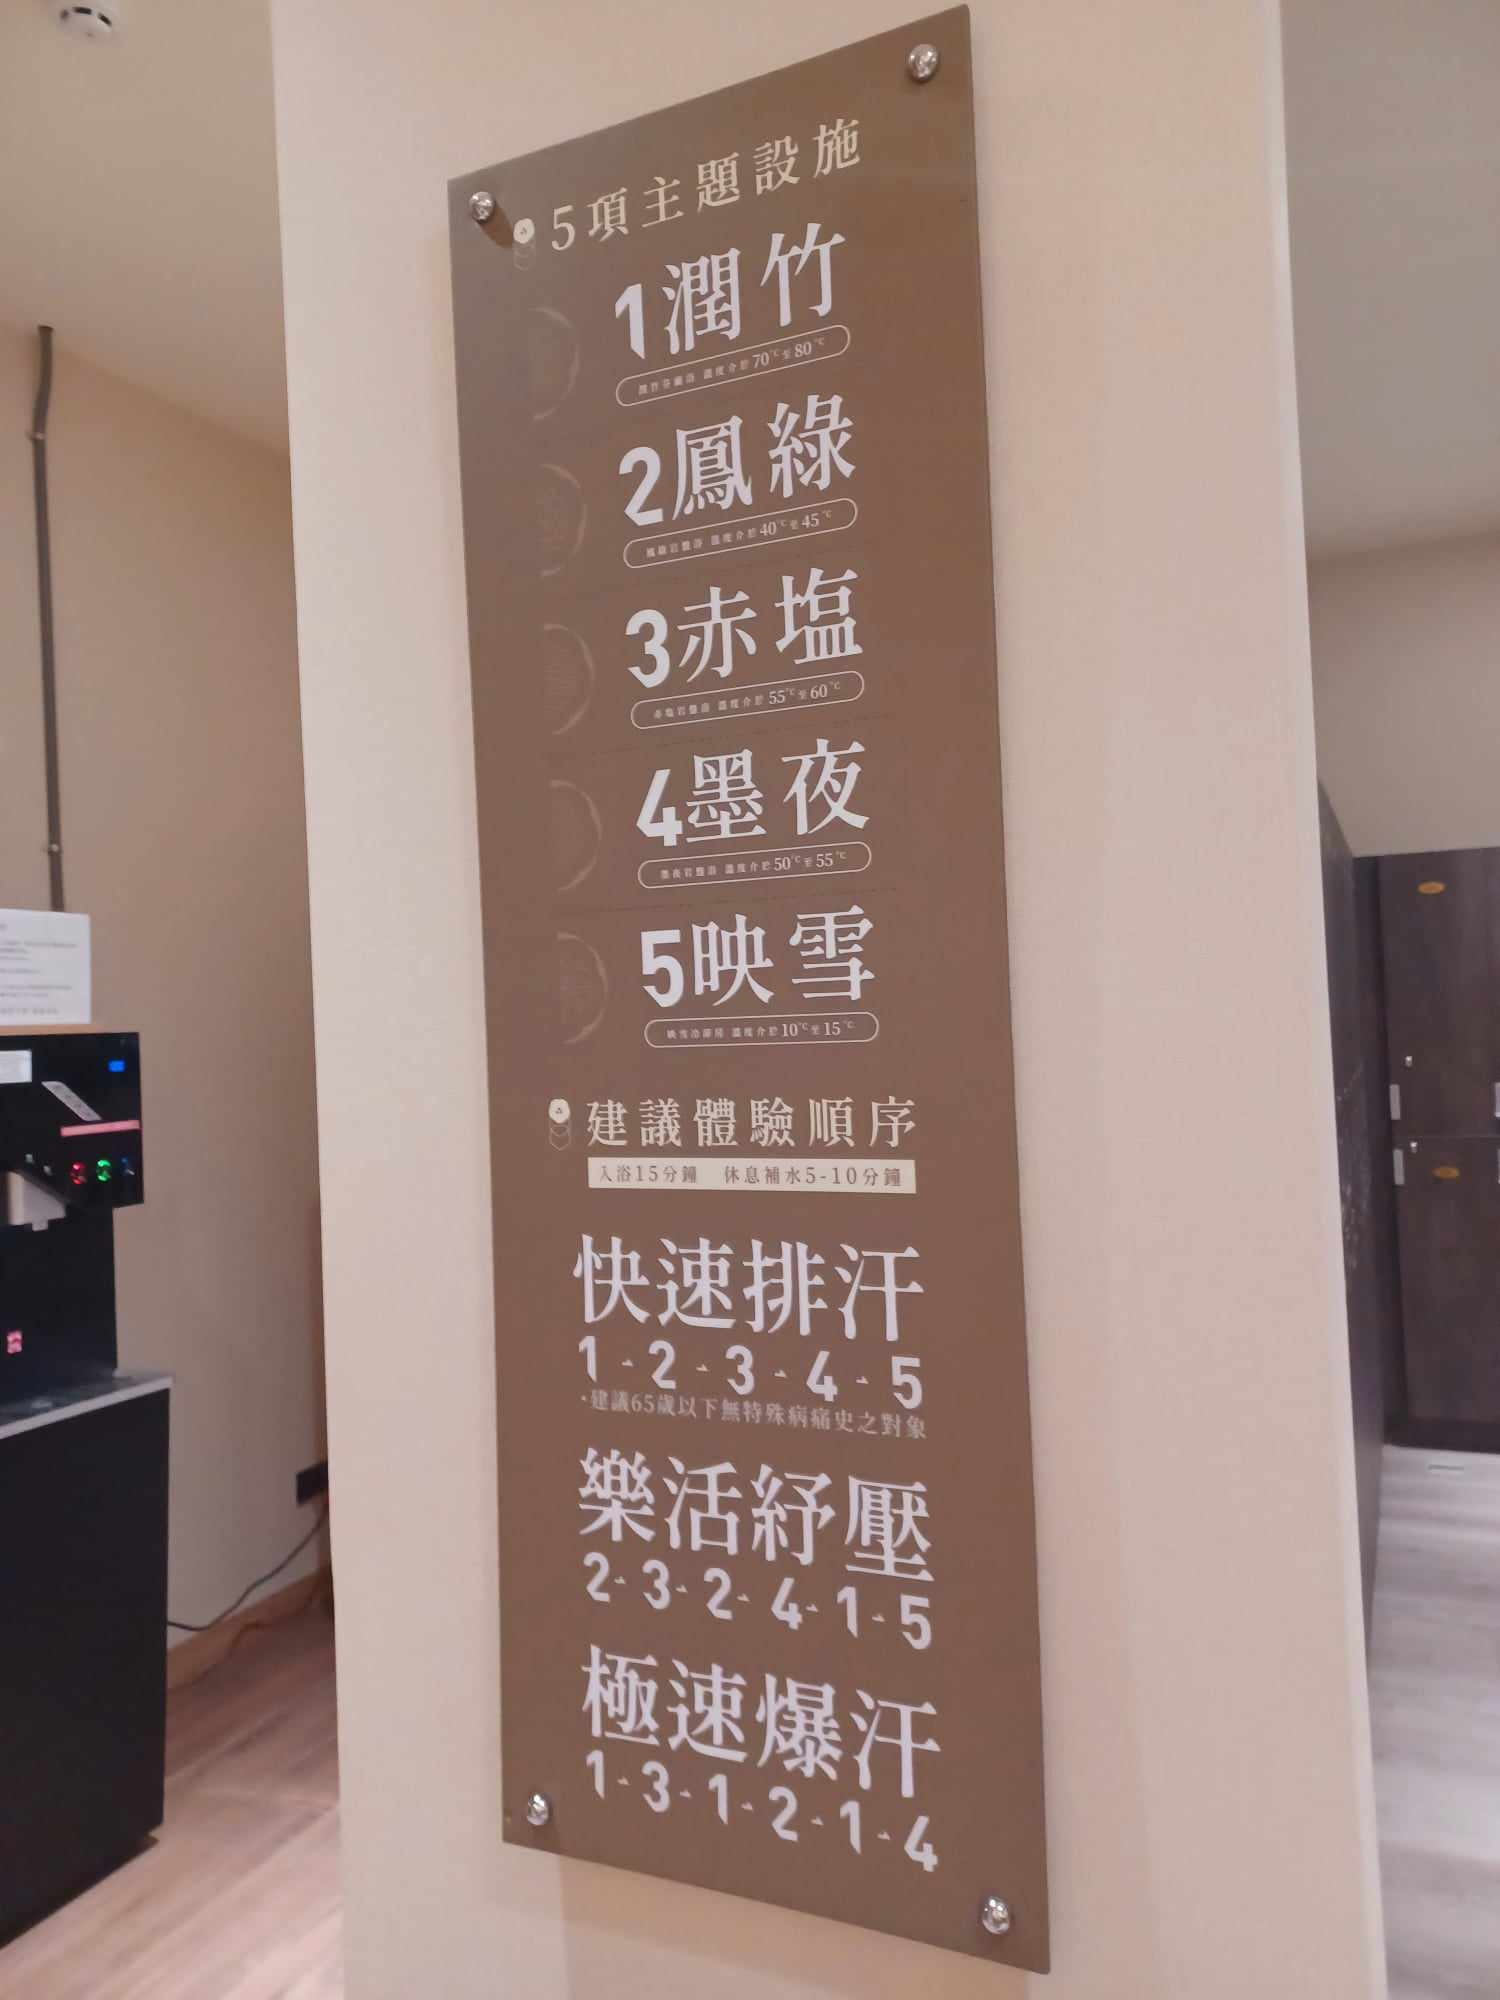 5項主題設施
1潤竹
潤竹芬蘭浴 溫度介於70℃至80℃
2鳳綠
鳳綠岩盤浴 溫度介於40℃至45℃
3赤塩
赤塩岩盤浴 溫度介於55℃至60℃
4墨夜
墨夜岩盤浴 溫度介於50℃至55℃
5映雪
映雪冷卻房 溫度介於10℃至15℃
建議體驗順序
入浴15分鐘 休息補水5-10分鐘
快速排汗
1-2-3-4-5
·建議65歲以下無特殊病痛史之對象
樂活紓壓
2-3-2-4-1-5
極速爆汗
1-3-1-2-1-4